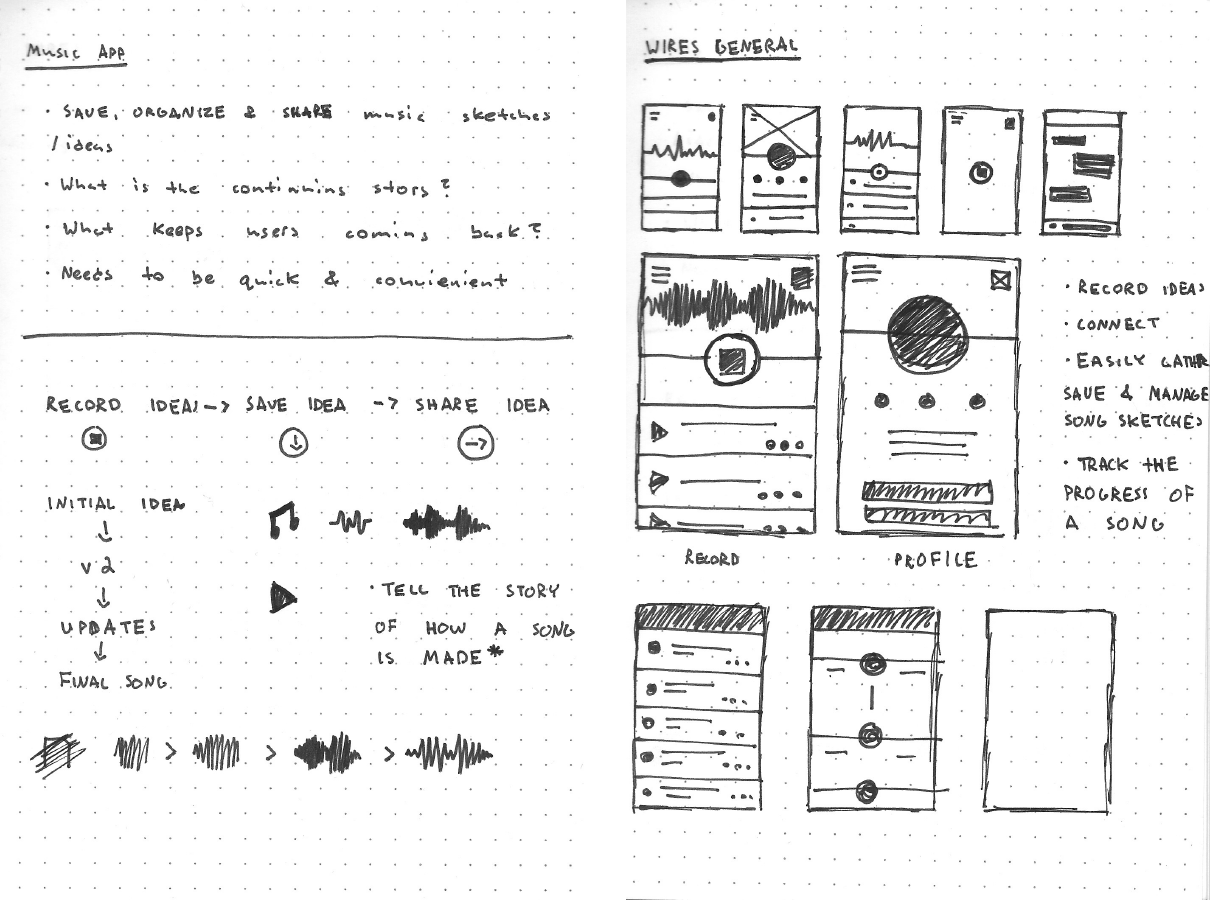 Music App
· SAVE, ORGANIZE & SHARE music sketches
/ideas
· What is the continuing story?
· What keeps users coming back?
· Needs to be quick & convienient
RECORD IDEAS -> SAVE IDEA -> SHARE IDEA
INITIAL IDEA
↓
v2
↓
UPDATES
↓
FINAL SONG
· TELL THE STORY
OF HOW A SONG
IS MADE*
> > >
WIRES GENERAL
· RECORD IDEAS
· CONNECT
· EASILY GATHER
SAVE & MANAGE
SONG SKETCHES
· TRACK THE
PROGRESS OF
A SONG
RECORD
PROFILE